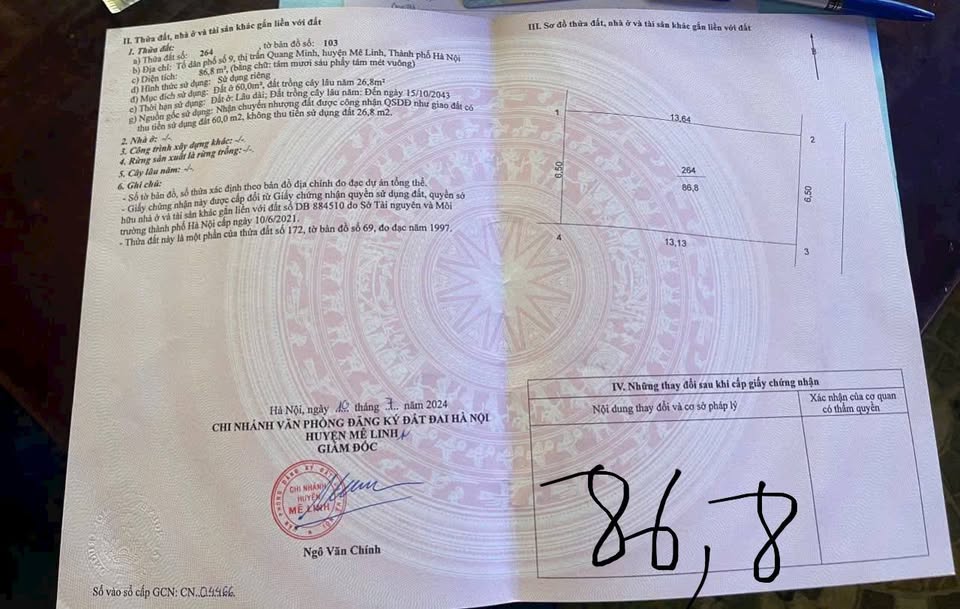 II. Thửa đất, nhà ở và tài sản khác gắn liền với đất
1. Thửa đất:
a) Thửa đất số: 264 , tờ bản đồ số: 103
b) Địa chỉ: Tổ dân phố số 9, thị trấn Quang Minh, huyện Mê Linh, Thành phố Hà Nội
c) Diện tích: 86,8 m², (bằng chữ: tám mươi sáu phẩy tám mét vuông)
d) Hình thức sử dụng: Sử dụng riêng
đ) Mục đích sử dụng: Đất ở 60,0m², đất trồng cây lâu năm 26,8m²
e) Thời hạn sử dụng: Đất ở: Lâu dài; Đất trồng cây lâu năm: Đến ngày 15/10/2043
g) Nguồn gốc sử dụng: Nhận chuyển nhượng đất được công nhận QSDĐ như giao đất có
thu tiền sử dụng đất 60,0 m2, không thu tiền sử dụng đất 26,8 m2.
2. Nhà ở: -/-
3. Công trình xây dựng khác: -/-
4. Rừng sản xuất là rừng trồng: -/-
5. Cây lâu năm: -/-
6. Ghi chú:
- Số tờ bản đồ, số thửa xác định theo bản đồ địa chính đo đạc dự án tổng thể.
- Giấy chứng nhận này được cấp đổi từ Giấy chứng nhận quyền sử dụng đất, quyền sở
hữu nhà ở và tài sản khác gắn liền với đất số DB 884510 do Sở Tài nguyên và Môi
trường thành phố Hà Nội cấp ngày 10/6/2021.
- Thửa đất này là một phần của thửa đất số 172, tờ bản đồ số 69, đo đạc năm 1997.
Hà Nội, ngày tháng năm 2024
CHI NHÁNH VĂN PHÒNG ĐĂNG KÝ ĐẤT ĐAI HÀ NỘI
HUYỆN MÊ LINH
GIÁM ĐỐC
CHI NHÁNH
HUYỆN
MÊ LINH
Ngô Văn Chính
Số vào sổ cấp GCN: CN
III. Sơ đồ thửa đất, nhà ở và tài sản khác gắn liền với đất
B
1
13,64
2
6,50
264
86,8
6,50
4
13,13
3
IV. Những thay đổi sau khi cấp giấy chứng nhận
Nội dung thay đổi và cơ sở pháp lý
Xác nhận của cơ quan
có thẩm quyền
86,8